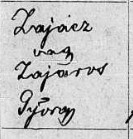 Zajácz
vag
Zajáros
György